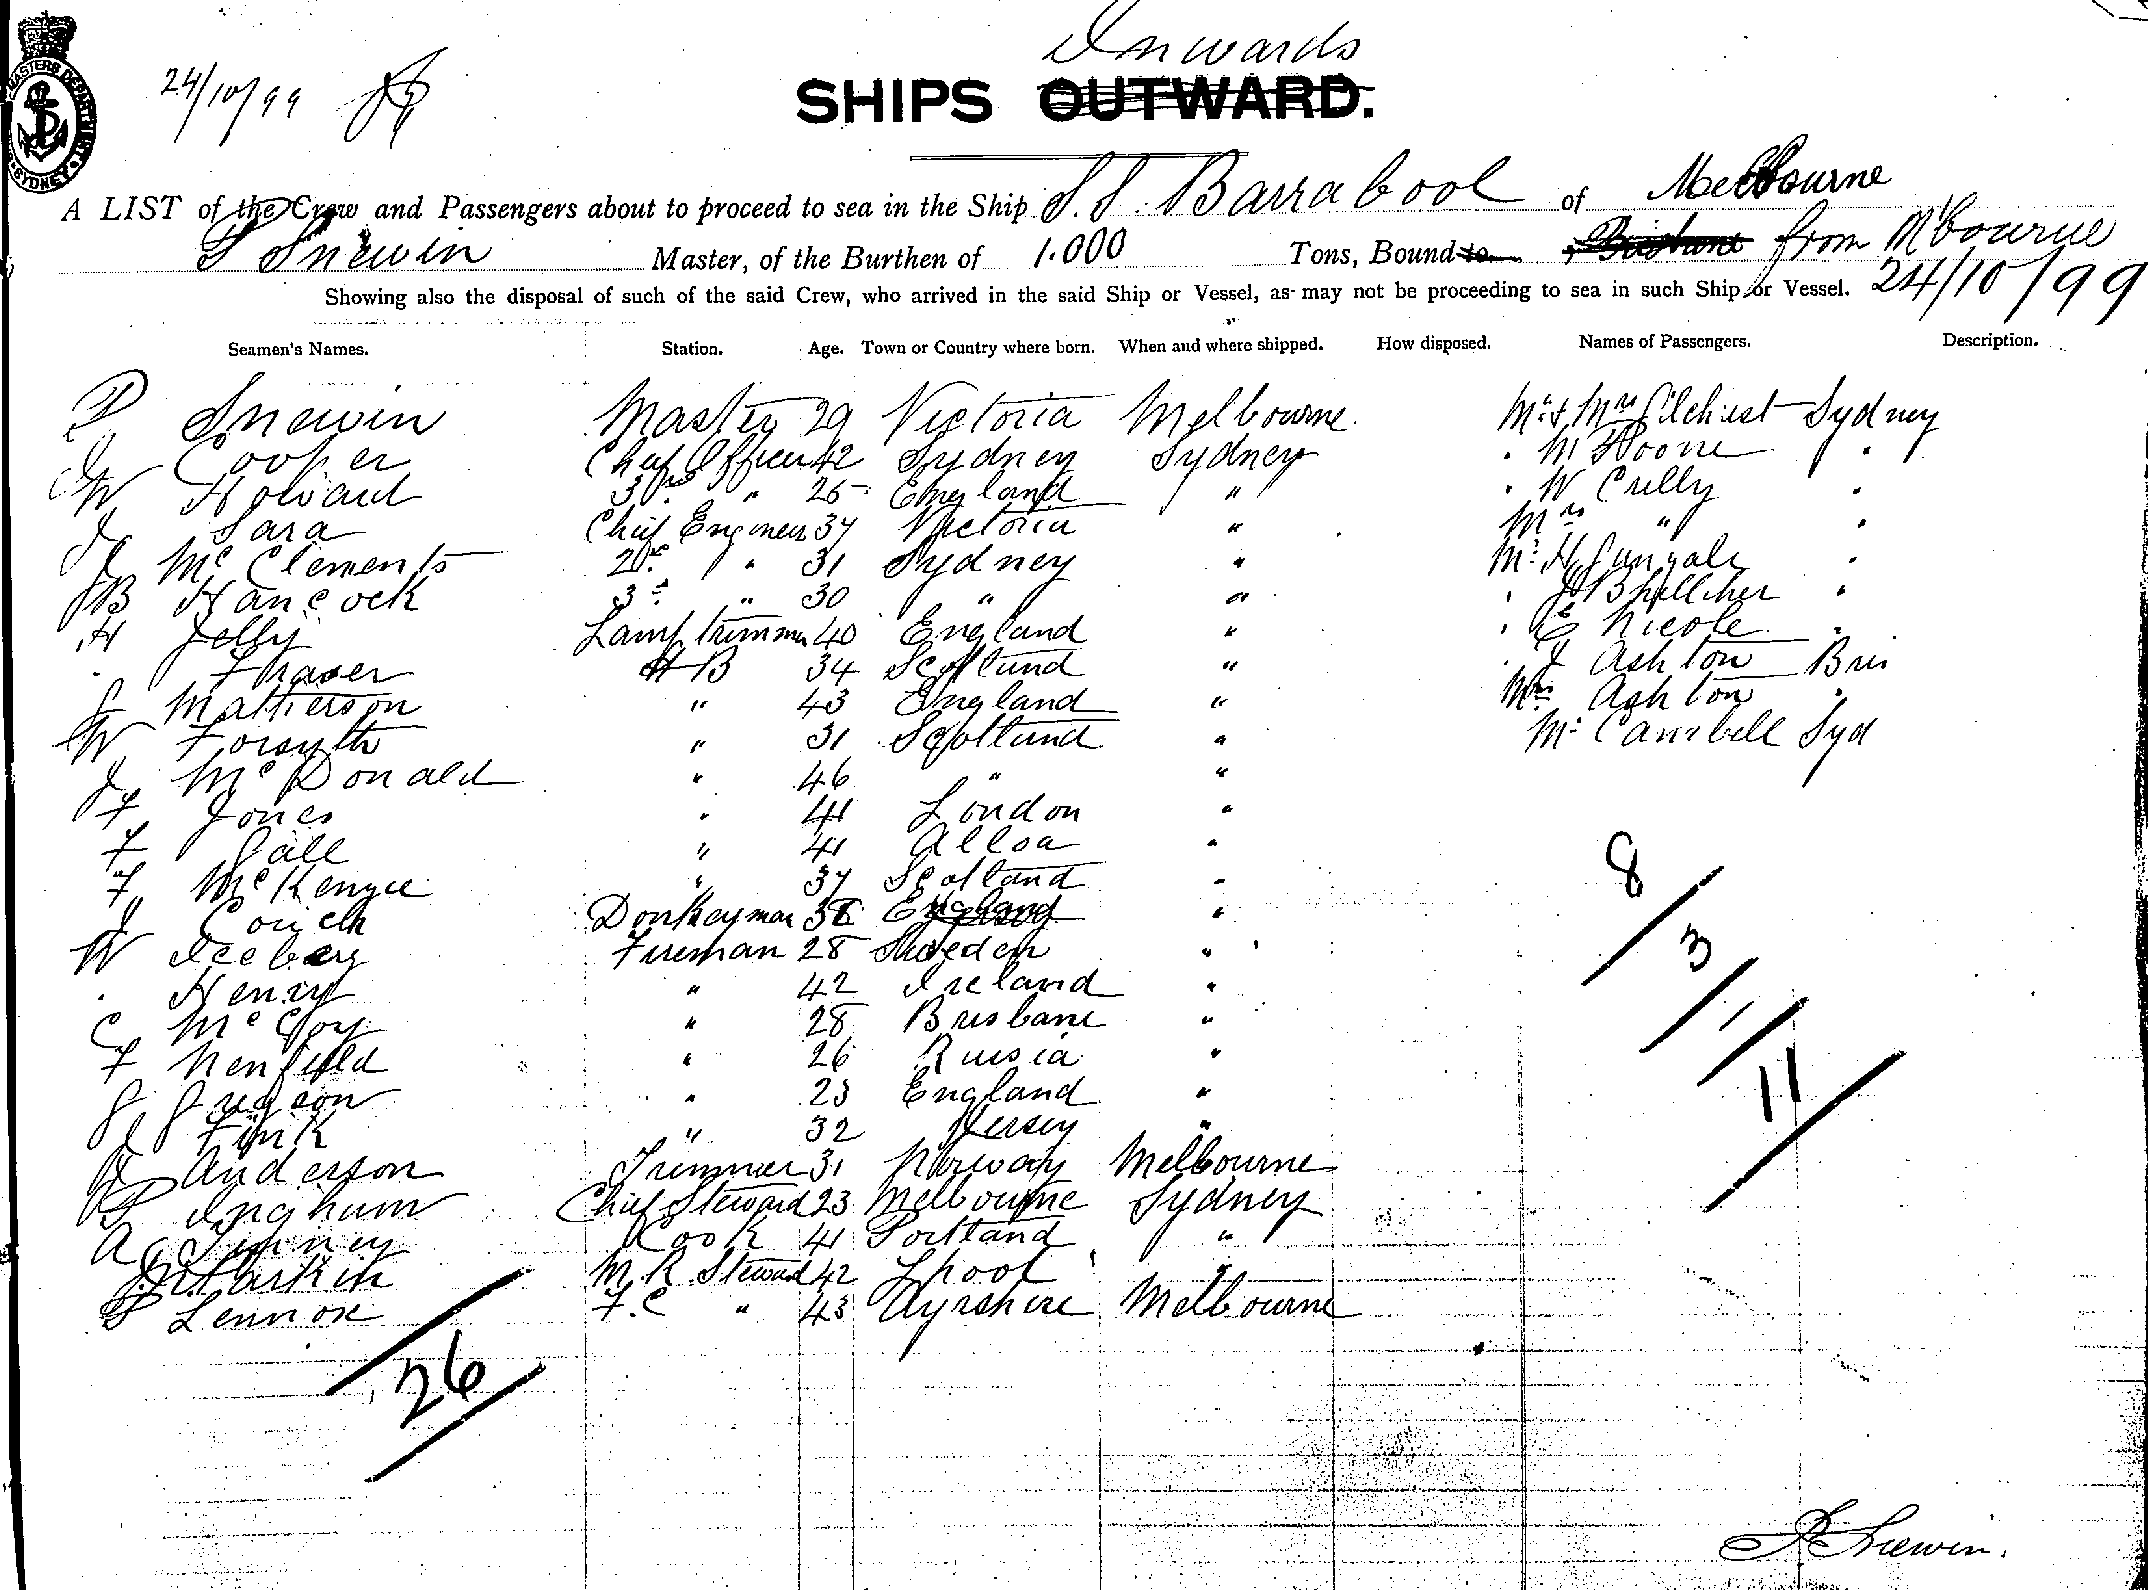 Inwards
24/10/99
SHIPS OUTWARD.
MASTERS DEPARTMENT SYDNEY
A LIST of the Crew and Passengers about to proceed to sea in the Ship S.S. Barrabool of Melbourne
P Snewin Master, of the Burthen of 1.000 Tons, Bound to Brisbane from M'bourne
Showing also the disposal of such of the said Crew, who arrived in the said Ship or Vessel, as may not be proceeding to sea in such Ship or Vessel. 24/10/99
Seamen's Names. Station. Age. Town or Country where born. When and where shipped. How disposed. Names of Passengers. Description.
P Snewin Master 29 Victoria Melbourne. Mr & Mrs Gilchrist Sydney
J Cooper Chief Officer 42 Sydney Sydney " M Hoone "
W Howard 3rd " 25 England " " W Crilly "
J Sara Chief Engineer 37 Victoria " Mrs " "
J McClements 2nd " 31 Sydney " Mr H "
JB Hancock 3rd " 30 " " " J "
H Jelly Lamptrimmer 40 England " " E Nicole "
" Fraser AB 34 Scotland " " J Ashton Bris
J Matherson " 43 England " Mrs Ashton "
W Forsyth " 31 Scotland " Mr Campbell Syd
J McDonald " 46 " "
F Jones " 41 London "
F Gall " 41 Alloa "
F McKenzie " 37 Scotland "
J Couch Donkeyman 38 England "
W Iceberg Fireman 28 Sweden "
" Henry " 42 Ireland "
C McCoy " 28 Brisbane "
F Nenfield " 26 Russia "
G Gregson " 23 England "
J Fink " 32 Jersey "
J Anderson Trimmer 31 Norway Melbourne
P Ingham Chief Steward 23 Melbourne Sydney
A G Cook 41 Portland "
Larkin M.R Steward 42 Lpool "
P Lennox F.C " 43 Ayrshire Melbourne
8/3/1/11
26
P Snewin.